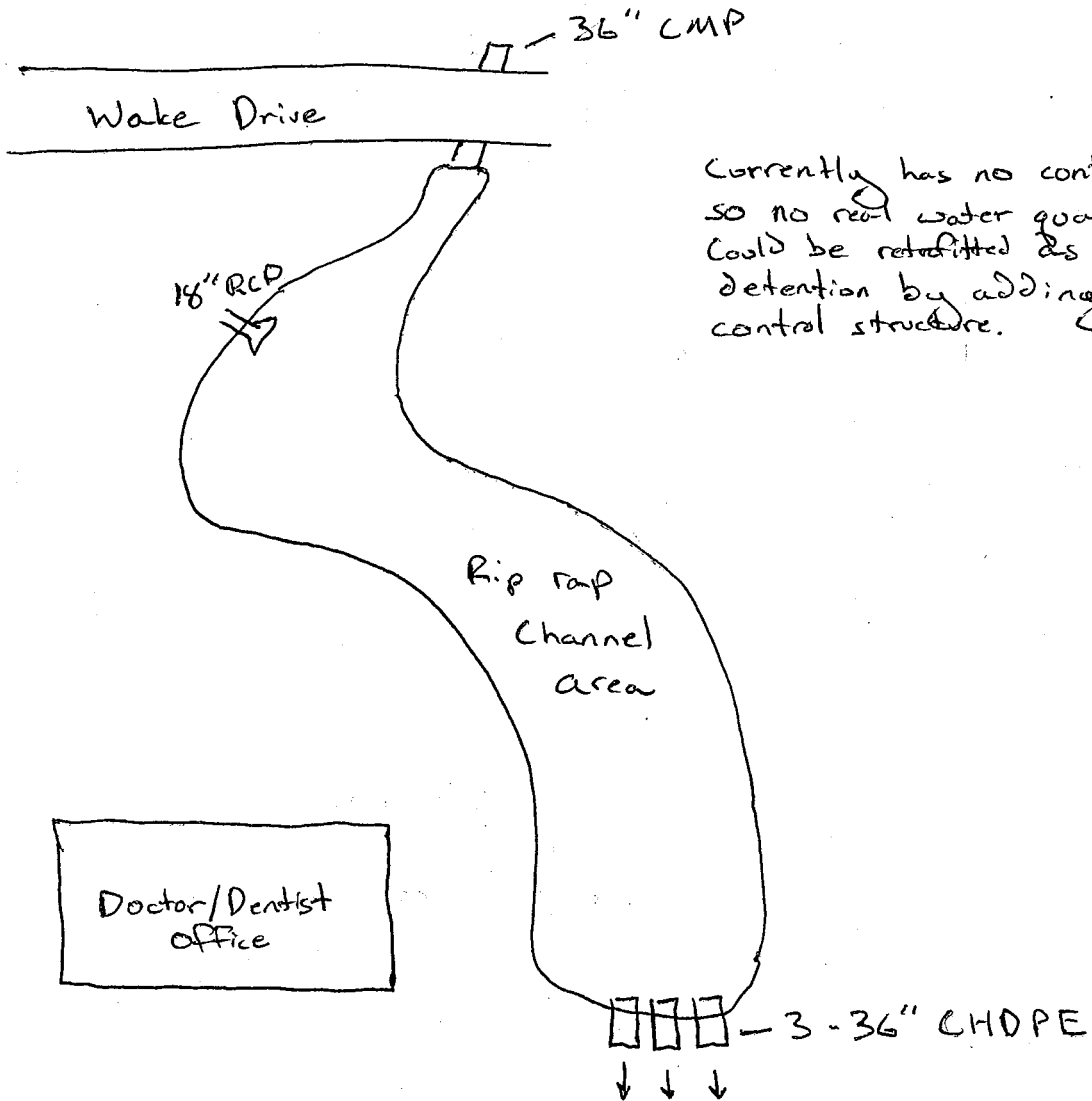 36" CMP
Wake Drive
Currently has no cont
so no real water qua
Could be retrofitted as
detention by adding
control structure.
18" RCP
Rip rap
Channel
area
Doctor/Dentist
office
3-36" CHDPE